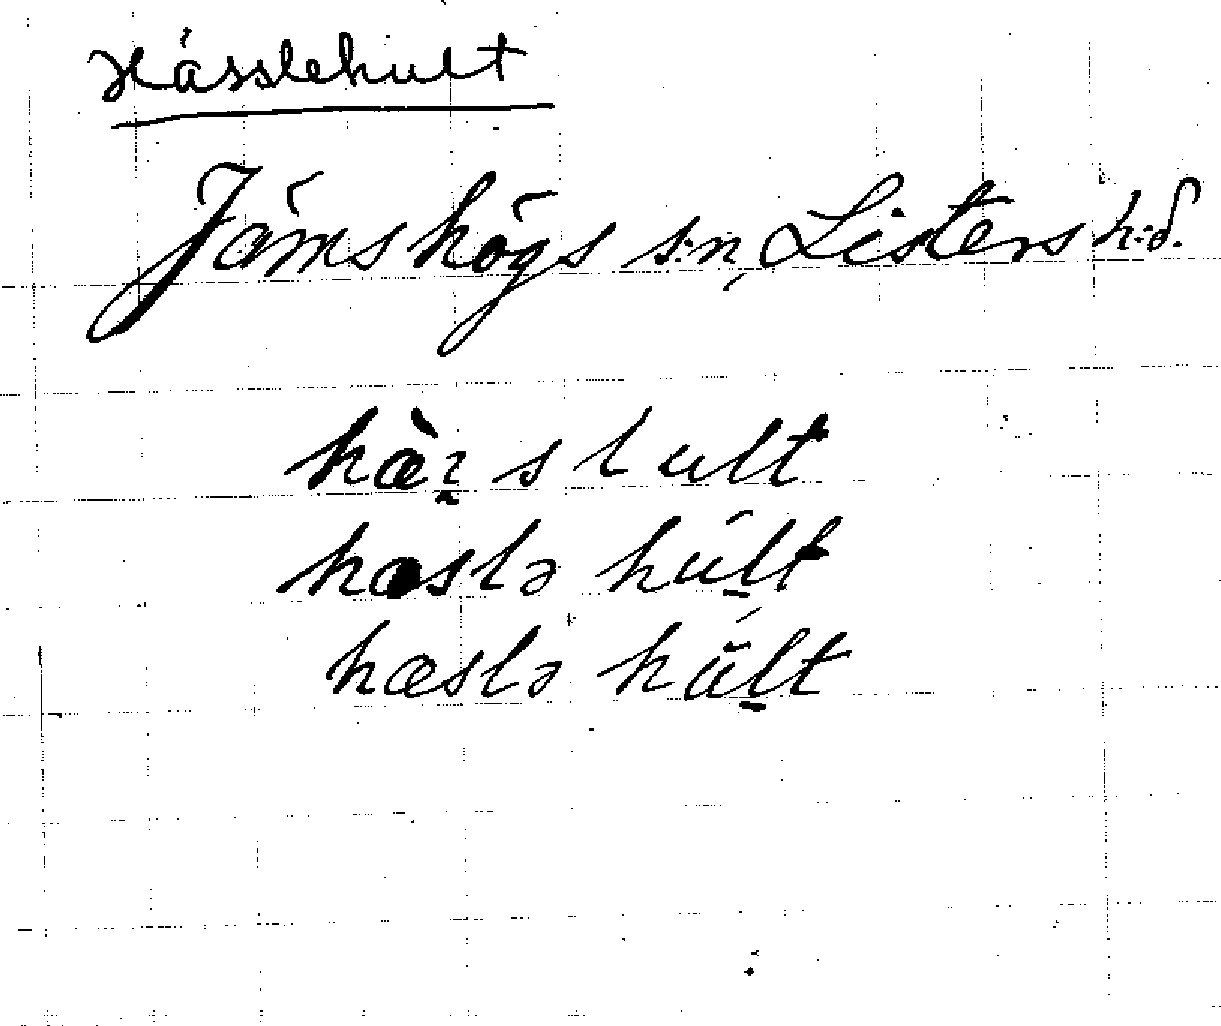 Hässlehult
Jämshögs s:n, Listers h:d.
hæ̀ꝛslult
hæslə húlt
hæslə hú̆lt